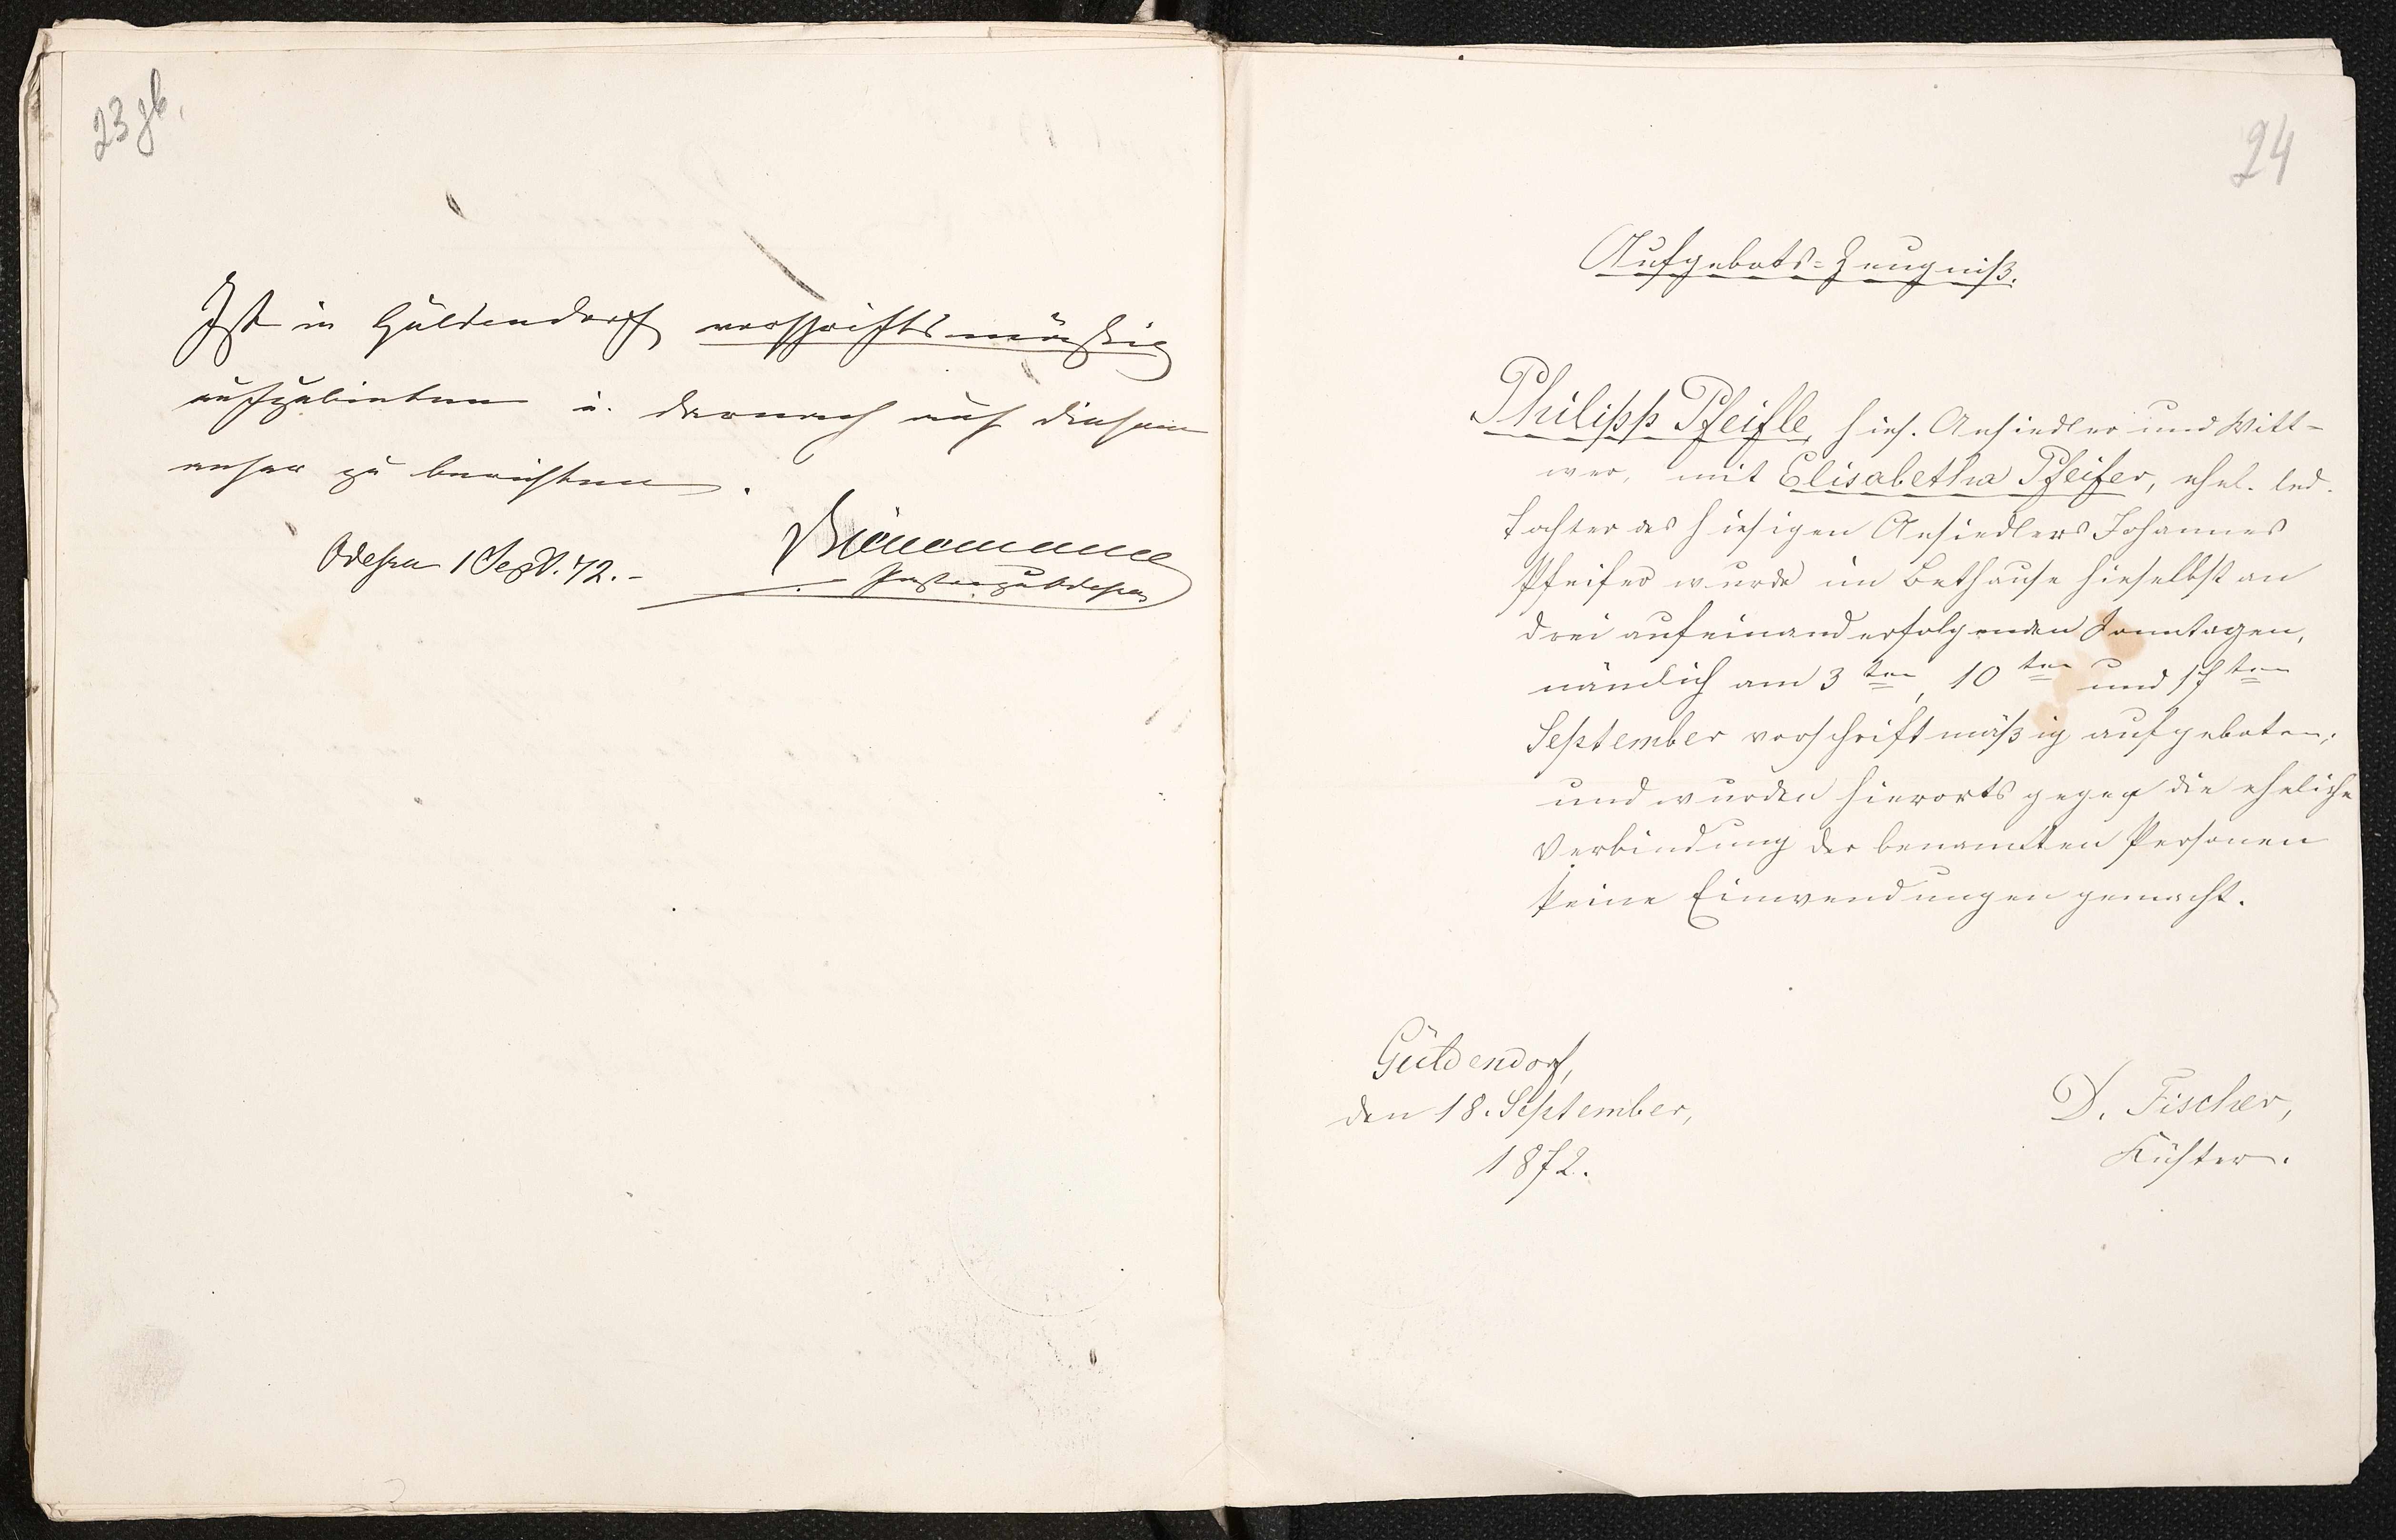 23 об.
Ist in Güldendorf vorschriftsmässig
aufzubieten u. darnach auf diesem
anher zu berichten.
Odessa 1 Sept. 72.-
Bienemann
Pastor zu Odessa
24
Aufgebots=Zeugniß.
Philipp Pfeifle, hies. Ansiedler und Witt-
wer, mit Elisabetha Pfeifer, ehel. led.
Tochter des hiesigen Ansiedlers Johannes
Pfeifer wurde im Bethause hieselbst an
drei aufeinanderfolgenden Sonntagen,
nämlich am 3ten, 10ten und 17ten
September vorschriftmäßig aufgeboten;
und wurden hierorts gegen die eheliche
Verbindung der benannten Personen
keine Einwendungen gemacht.
Güldendorf,
den 18. September,
1872.
D. Fischer,
Küster.